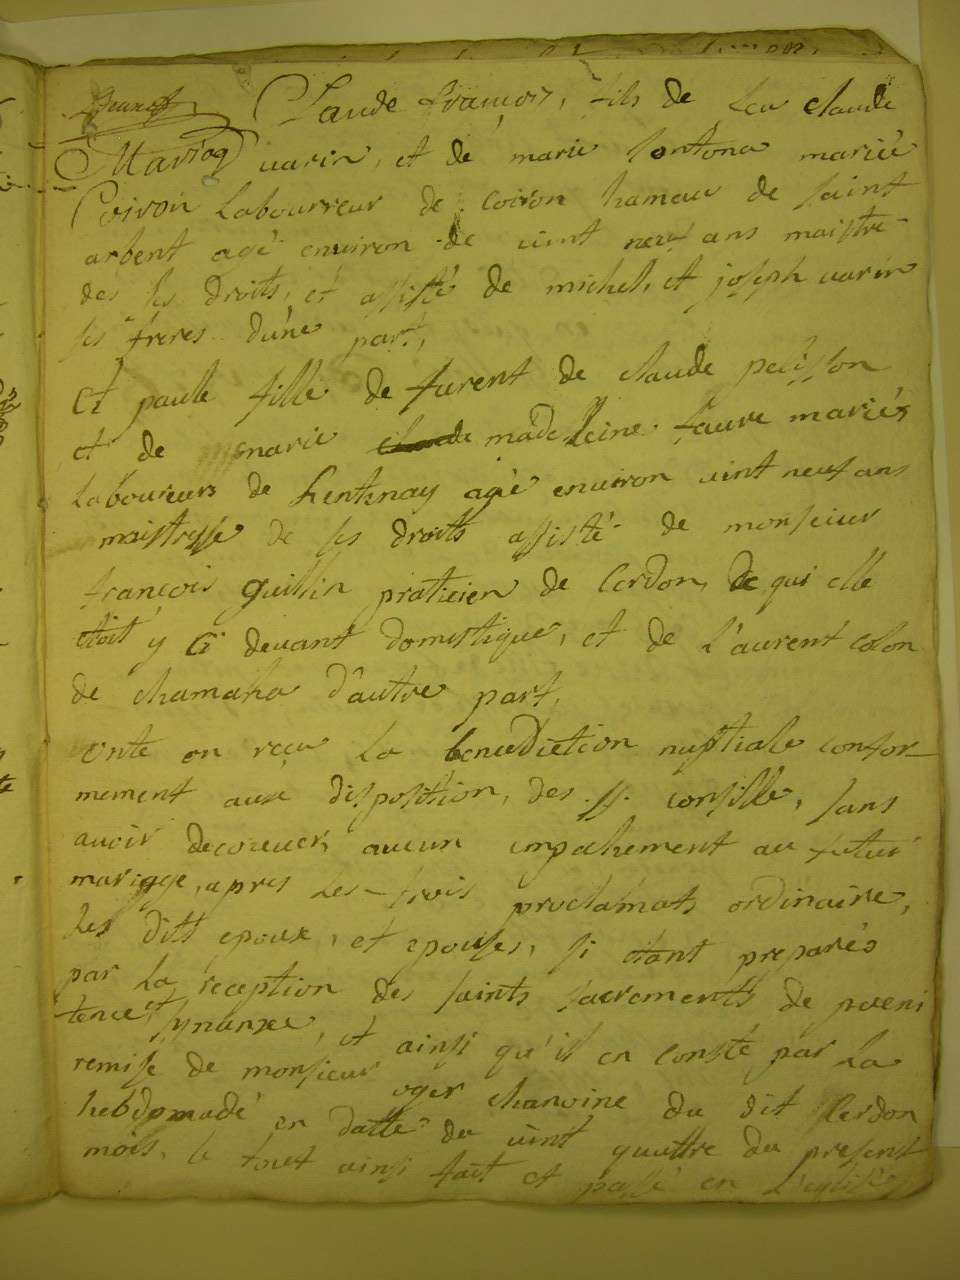 Claude françois, fils de feu claude
Mariag varin, et de marie fontona mariée
Coiron Labourreur de Coiron hameau de saint
arbent agé environ de vint neuf ans maistre
des ses droits, et assisté de michel, et joseph varin
ses freres d'une part,
Et paule fille de furent de claude pelisson
et de marie madelleine faure mariés
Laboureurs de hentenay agée environ vint neuf ans
maistresse de ses droits assisté de monseieur
françois guillin praticien de Cerdon, de qui elle
étoit y ci devant domestique, et de L'aurent colon
de chamana d'autre part,
onte on reçu La benediction nuptiale confor-
mement aux disposition, des ss. consille, sans
avoir decouver aucun empahement au futur
mariage, apres les trois proclamats ordinaire,
les ditt epoux, et epouses, si etant preparés
par La reception des saints sacrements de peni
tence, et synaxe, et ainsi qu'il en Consté par La
remise de monsieur oger chanoine du dit Cerdon
hebdomadé en datte du vint quattre du present
mois, le tout ainsi fait et passé en L'eglise